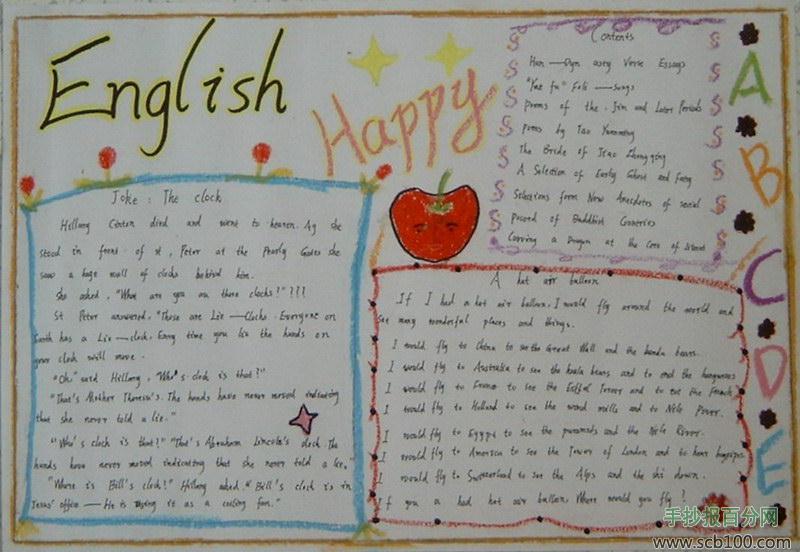 English
Happy
Contents
Han — Dyn asty Verse Essays
"Yue fu" Folk — songs
poems of the Jin and Later Periods
poems by Tao Yuanming
The Bride of Jiao Zhongqing
A Selection of Early Ghost and Fairy
Selections form New Anecdotes of social
Buddhist
Carving a Dragon at the Core of
A
B
C
D
E
Joke : The clock
Hillary Cinton died and went to heaven. As she
stood in front of st , Peter at the Pearly Gates she
saw a huge wall of clocks behind him.
She asked , "What are you are those clocks?"???
St Peter answered, "Those are Lie — Clocks. Everyone on
Earth has a Lie — clock. Every time you lie the hands on
your clock will move .
"Oh," said Hillary , "Who's clock is that?"
"That's Mother Theresa's. The hands have never moved indicating
that she never told a lie."
"Who's clock is that?" "That's Abraham Lincoln's clock. The
hands have never moved indicating that she never told a lie,"
"Where is Bill's clock?" Hillary asked. " Bill's clock is in
Jesus' office — He is using it as a ceiling fan."
A hot air balloon
If I had a hot air balloon, I would fly around the world and
see many wonderful places and things.
I would fly to China to see the Great Wall and the panda bears.
I would fly to Australia to see the koala bears and to the kangaroos
I would fly to France to see the Eiffel Tower and to eat the French
I would fly to Holland to see the wind mills and to
I would fly to Egypt to see the pyramids and the Nile River.
I would fly to America to see the Tower of London and to hear bagpipes
I would fly to Switzerland to see the Alps and the ski down.
If you a had hot air balloon, Where would you fly ?
手抄报百分网
www.scb100.com